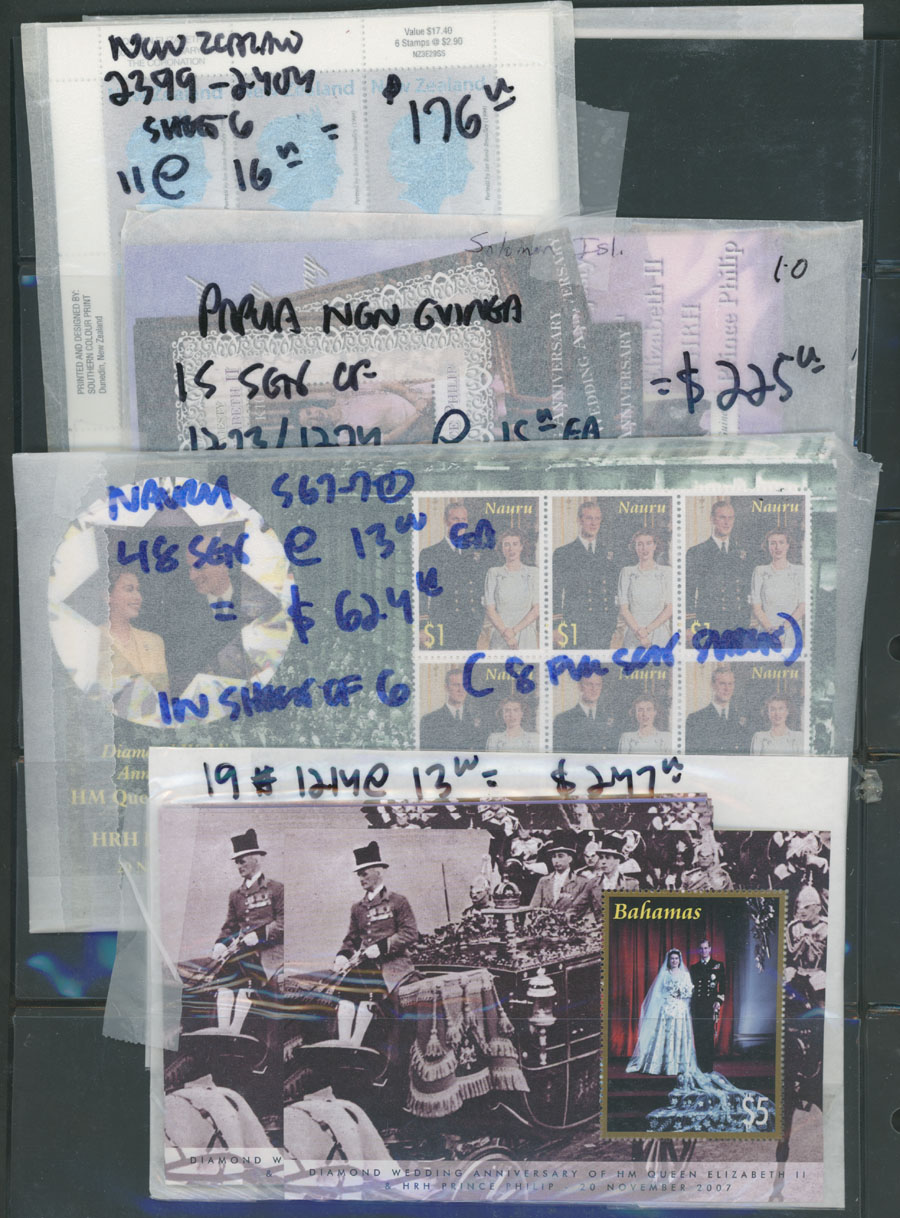 Value $17.40
6 Stamps @ $2.90
NZSE29SS
THE CORONATION
NEW ZEALAND
2399-2404
SHEET 6
11 @ 16 00 = $176 00
New Zealand
New Zealand
New Zealand
PRINTED AND DESIGNED BY:
SOUTHERN COLOUR PRINT
Dunedin, New Zealand
Solomon Isl.
1.0
PAPUA NEW GUINEA
15 SETS OF
= $225 00
1273/1274 @ 15 00 EA
ANNIVERSARY
WEDDING
Elizabeth II
HRH
Prince Philip
NAURU 567-70
48 SETS @ 13 00 EA
= $624 00
IN SHEETS OF 6 (8 FULL SETS SHEETS)
Nauru
Nauru
Nauru
$1
$1
$1
Nauru
Nauru
Nauru
HM Que
HRH
19 # 1214 @ 13 00 = $247 00
Bahamas
$5
DIAMOND W
&
DIAMOND WEDDING ANNIVERSARY OF HM QUEEN ELIZABETH II
& HRH PRINCE PHILIP - 20 NOVEMBER 2007